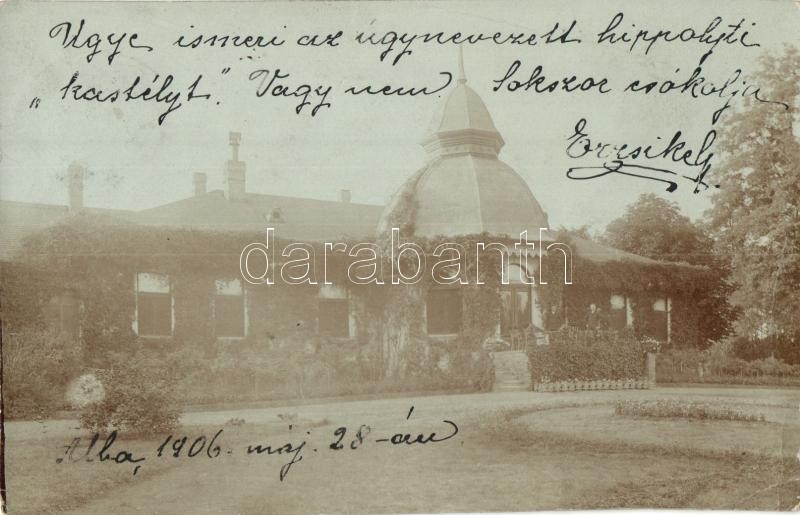 Ugye ismeri az úgynevezett hippolyti
„kastélyt". Vagy nem. Sokszor csókolja
Erzsikéj.
darabanth
Alba, 1906. máj. 28-án.